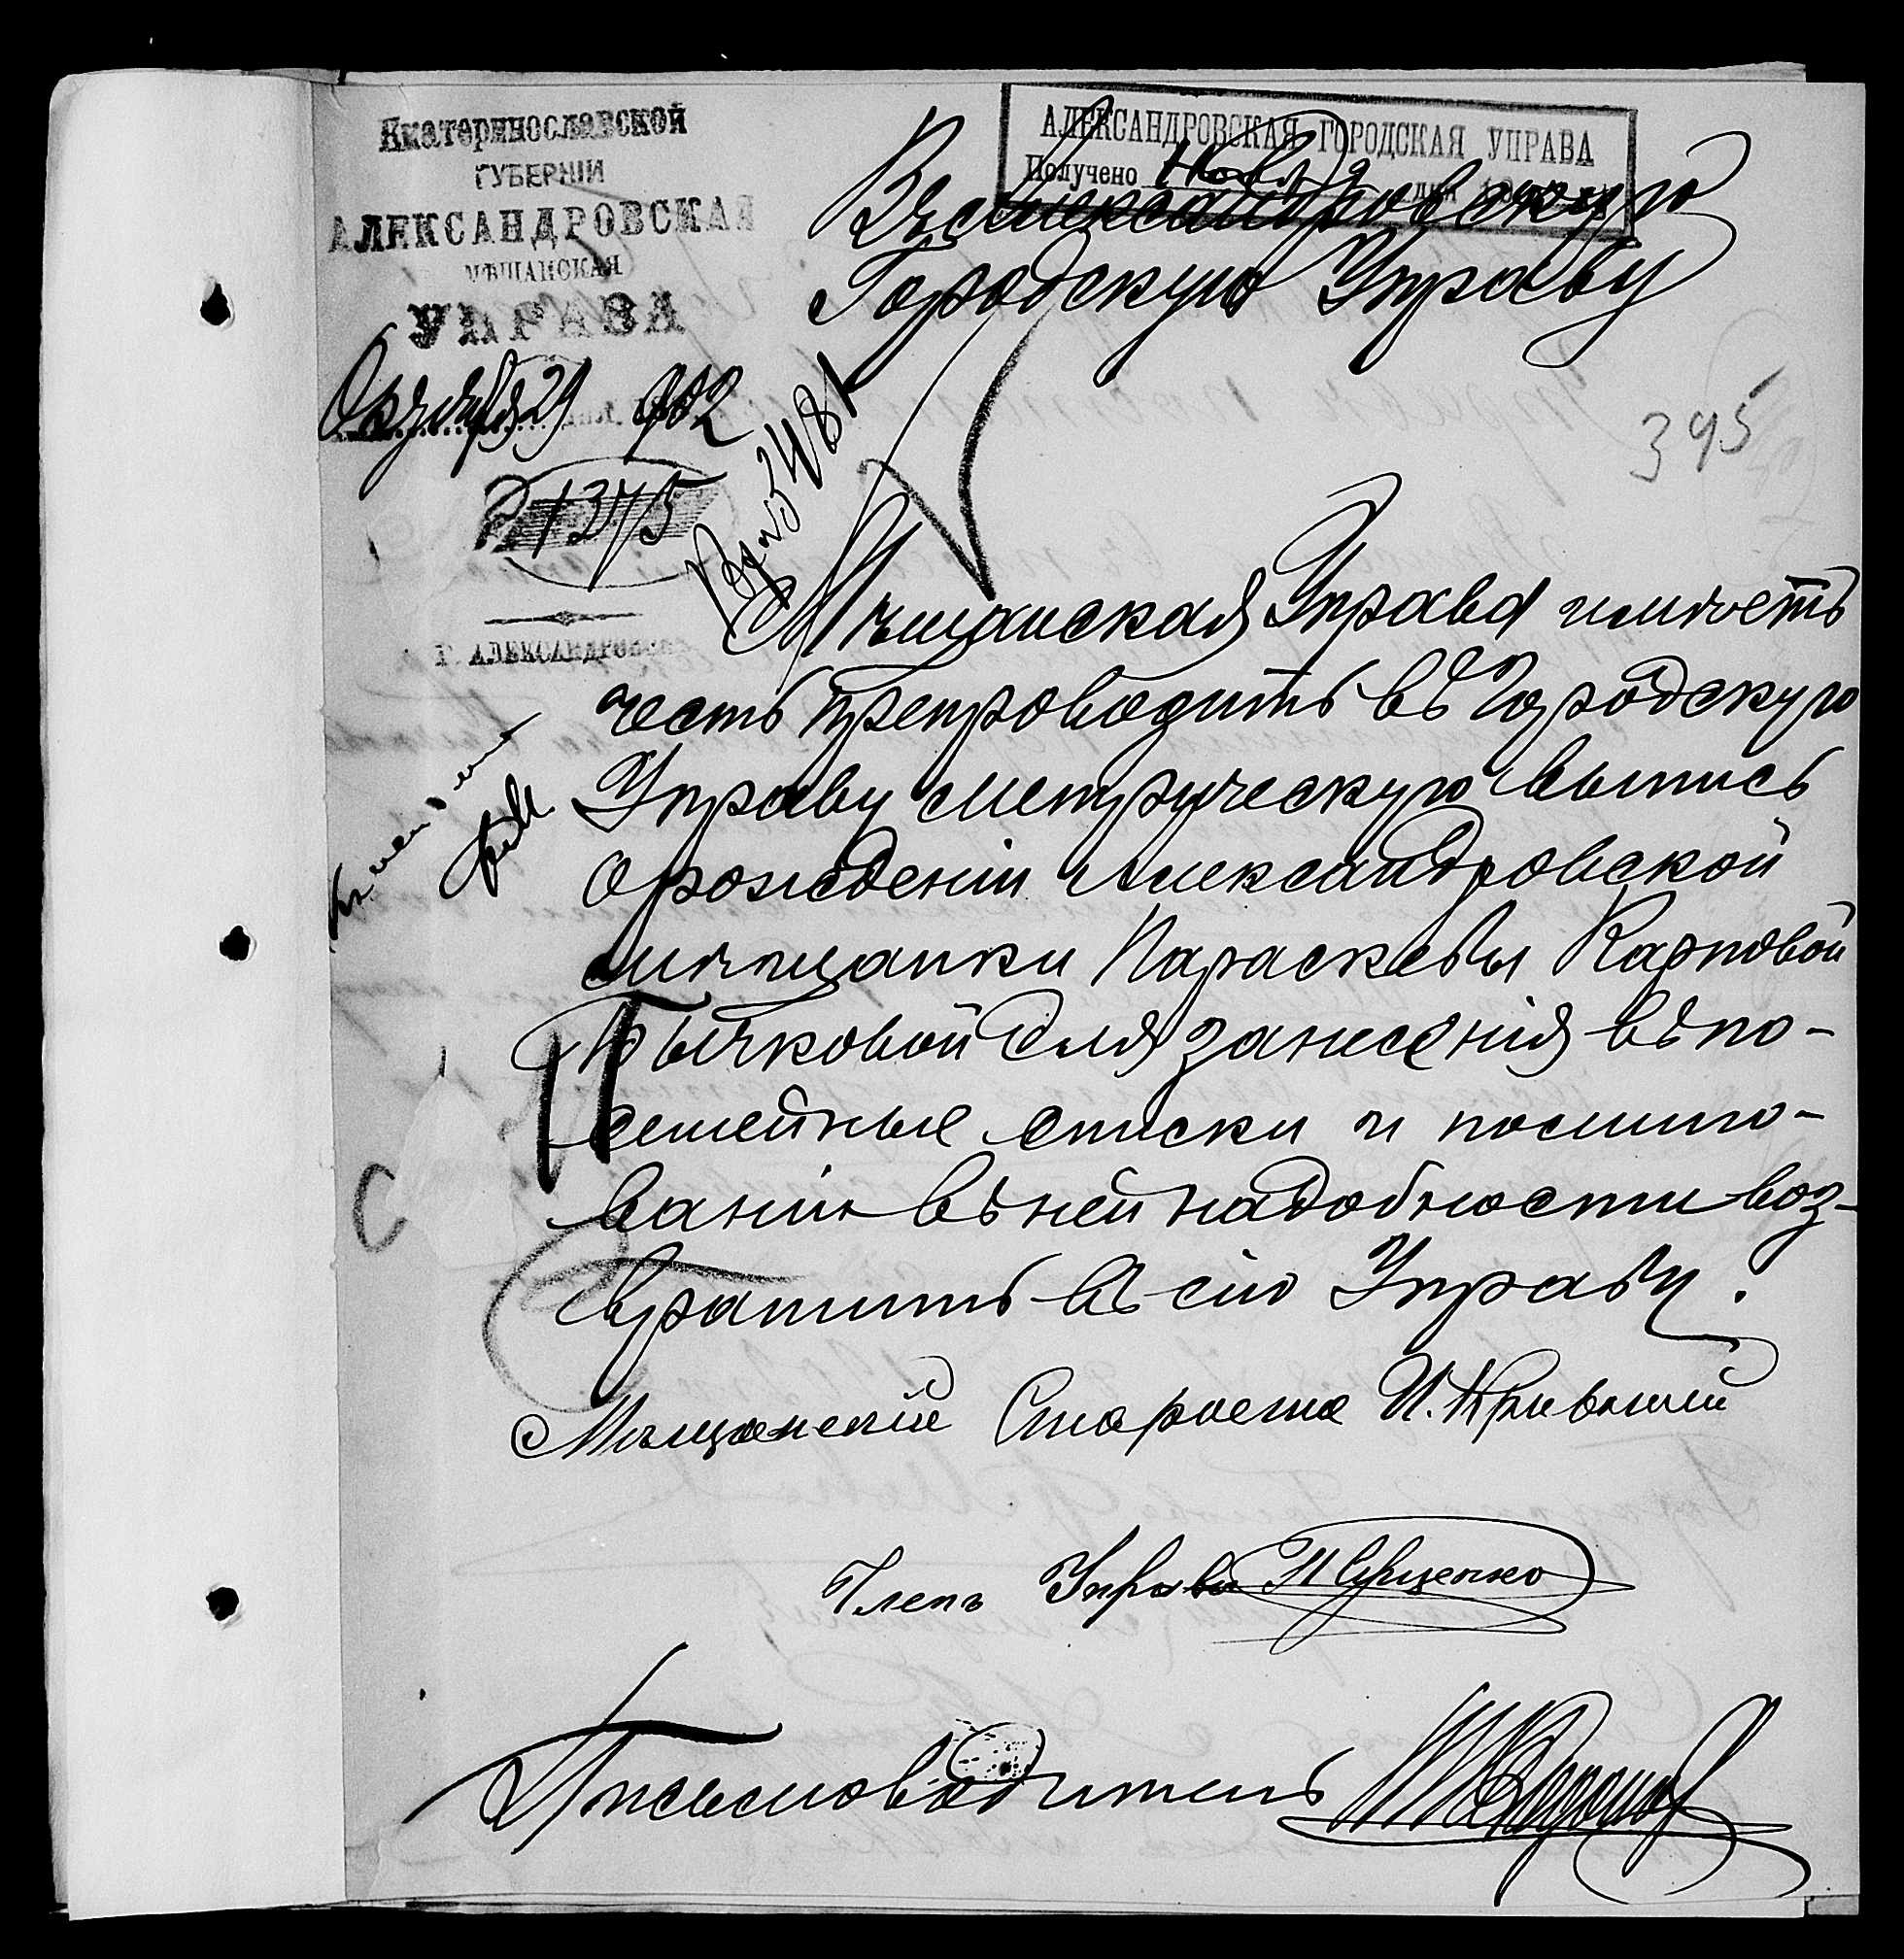 Екатеринославской
ГУБЕРНІИ
АЛЕКСАНДРОВСКАЯ
МѢЩАНСКАЯ
УПРАВА
Октября 29 902
№ 1375
Г. АЛЕКСАНДРОВСКЪ
АЛЕКСАНДРОВСКАЯ ГОРОДСКАЯ УПРАВА
Получено Нояб.
Въ Александровскую
Городскую Управу
Вх № 3481
395
Мѣщанская Управа имѣетъ
честь препроводить въ Городскую
Управу метрическую выпись
о рожденіи Александровской
мѣщанки Параскевы Карповой
Бычковой для занесенія въ по-
семейные списки и помино-
ваніи въ ней надобности воз-
вратить въ сію Управу.
Мѣщанскій Староста И.
Членъ Управы
Письмоводитель